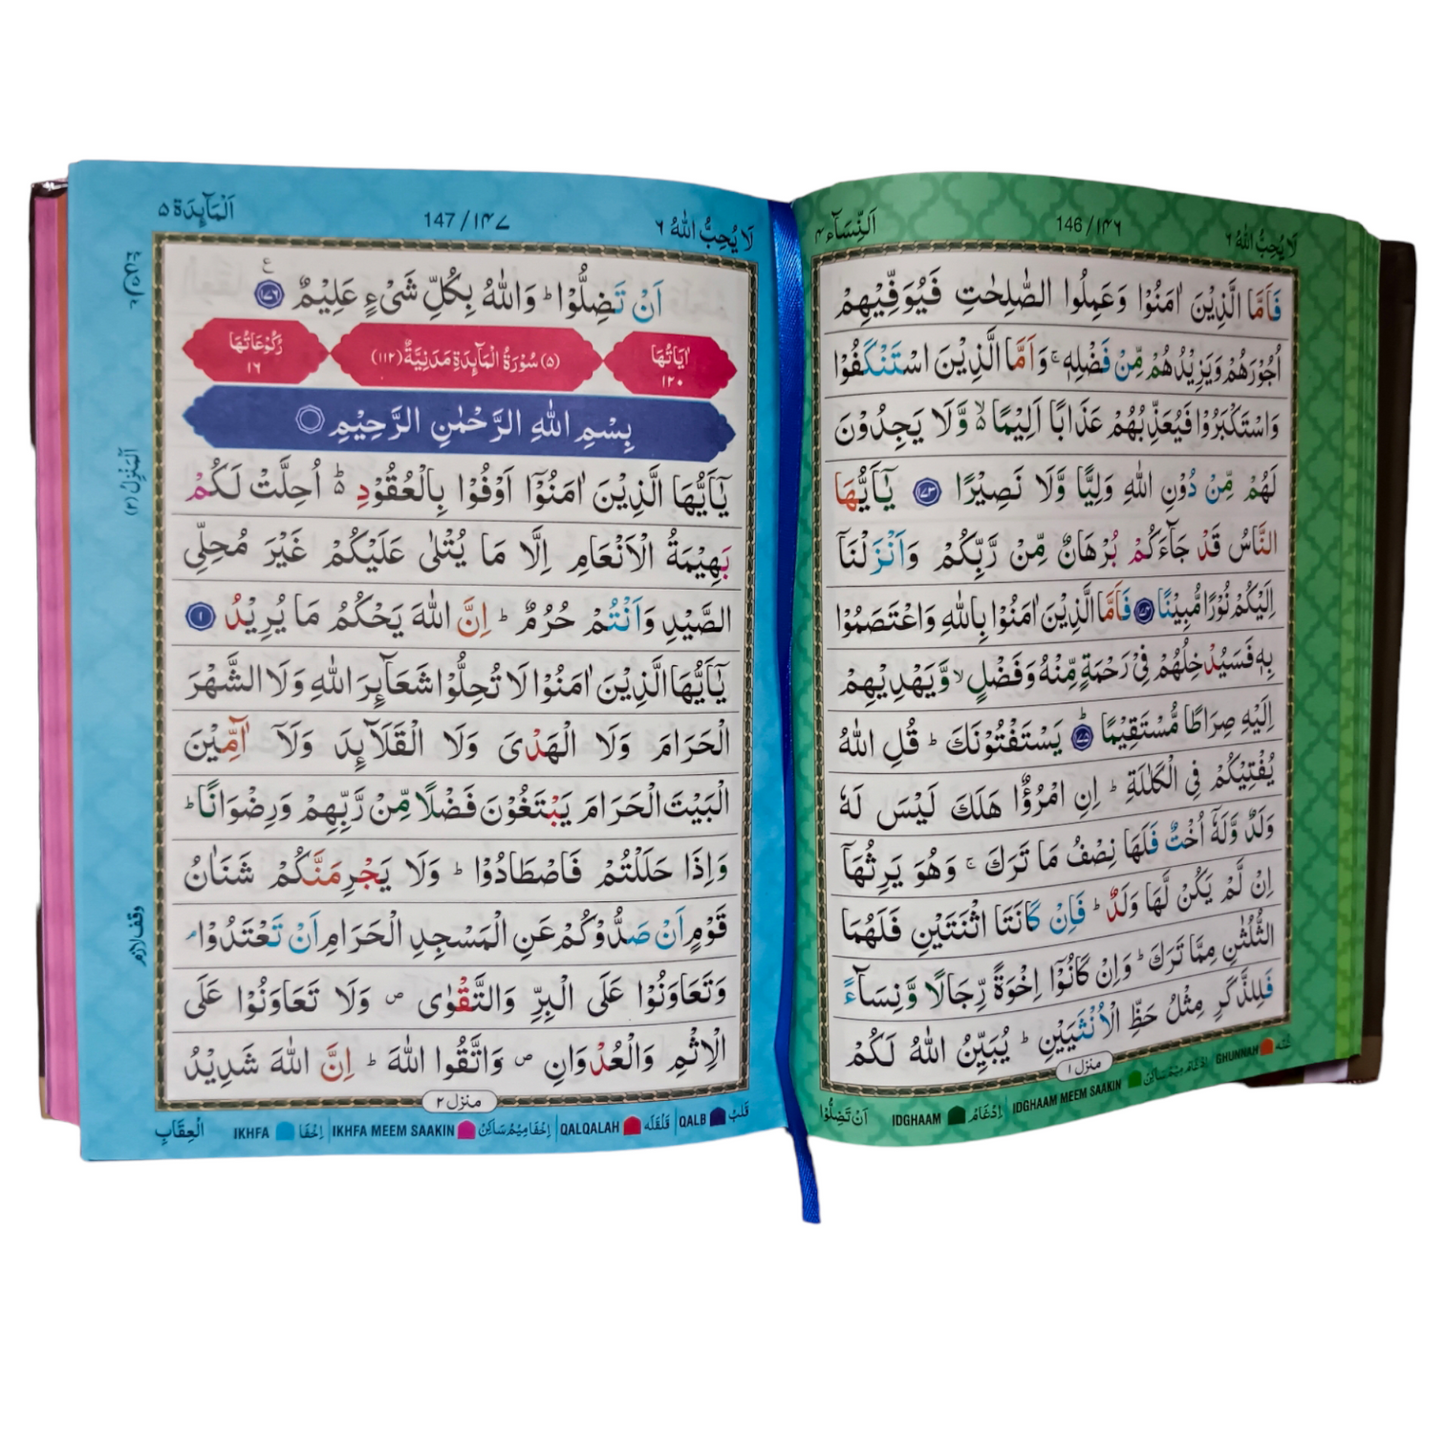 لَا يُحِبُّ اللّٰهُ ٦
146/١٤٦
اَلنِّسَآء ٤
فَاَمَّا الَّذِيْنَ اٰمَنُوْا وَعَمِلُوا الصّٰلِحٰتِ فَيُوَفِّيْهِمْ
اُجُوْرَهُمْ وَيَزِيْدُهُمْ مِّنْ فَضْلِهٖ ۚ وَاَمَّا الَّذِيْنَ اسْتَنْكَفُوْا
وَاسْتَكْبَرُوْا فَيُعَذِّبُهُمْ عَذَابًا اَلِيْمًا ۙ وَّلَا يَجِدُوْنَ
لَهُمْ مِّنْ دُوْنِ اللّٰهِ وَلِيًّا وَّلَا نَصِيْرًا ﴿١٧٣﴾ يٰٓاَيُّهَا
النَّاسُ قَدْ جَآءَكُمْ بُرْهَانٌ مِّنْ رَّبِّكُمْ وَاَنْزَلْنَآ
اِلَيْكُمْ نُوْرًا مُّبِيْنًا ﴿١٧٤﴾ فَاَمَّا الَّذِيْنَ اٰمَنُوْا بِاللّٰهِ وَاعْتَصَمُوْا
بِهٖ فَسَيُدْخِلُهُمْ فِيْ رَحْمَةٍ مِّنْهُ وَفَضْلٍ ۙ وَّيَهْدِيْهِمْ
اِلَيْهِ صِرَاطًا مُّسْتَقِيْمًا ﴿١٧٥﴾ يَسْتَفْتُوْنَكَ ؕ قُلِ اللّٰهُ
يُفْتِيْكُمْ فِي الْكَلٰلَةِ ؕ اِنِ امْرُؤٌا هَلَكَ لَيْسَ لَهٗ
وَلَدٌ وَّلَهٗٓ اُخْتٌ فَلَهَا نِصْفُ مَا تَرَكَ ۚ وَهُوَ يَرِثُهَآ
اِنْ لَّمْ يَكُنْ لَّهَا وَلَدٌ ؕ فَاِنْ كَانَتَا اثْنَتَيْنِ فَلَهُمَا
الثُّلُثٰنِ مِمَّا تَرَكَ ؕ وَاِنْ كَانُوْٓا اِخْوَةً رِّجَالًا وَّنِسَآءً
فَلِلذَّكَرِ مِثْلُ حَظِّ الْاُنْثَيَيْنِ ؕ يُبَيِّنُ اللّٰهُ لَكُمْ
منزل ١
غُنّه GHUNNAH اِدْغَام مِيْم سَاكِنْ IDGHAAM MEEM SAAKIN اِدْغَامْ IDGHAAM
اَنْ تَضِلُّوْا
لَا يُحِبُّ اللّٰهُ ٦
147/١٤٧
اَلْمَآئِدَة ٥
اَنْ تَضِلُّوْا ؕ وَاللّٰهُ بِكُلِّ شَيْءٍ عَلِيْمٌ ﴿١٧٦﴾ ع
اٰيَاتُهَا ١٢٠
(٥) سُوْرَةُ الْمَآئِدَةِ مَدَنِيَّةٌ (١١٢)
رُكُوْعَاتُهَا ١٦
بِسْمِ اللّٰهِ الرَّحْمٰنِ الرَّحِيْمِ
يٰٓاَيُّهَا الَّذِيْنَ اٰمَنُوْٓا اَوْفُوْا بِالْعُقُوْدِ ؕ اُحِلَّتْ لَكُمْ
بَهِيْمَةُ الْاَنْعَامِ اِلَّا مَا يُتْلٰى عَلَيْكُمْ غَيْرَ مُحِلِّي
الصَّيْدِ وَاَنْتُمْ حُرُمٌ ؕ اِنَّ اللّٰهَ يَحْكُمُ مَا يُرِيْدُ ﴿١﴾
يٰٓاَيُّهَا الَّذِيْنَ اٰمَنُوْا لَا تُحِلُّوْا شَعَآئِرَ اللّٰهِ وَلَا الشَّهْرَ
الْحَرَامَ وَلَا الْهَدْيَ وَلَا الْقَلَآئِدَ وَلَآ آٰمِّيْنَ
الْبَيْتَ الْحَرَامَ يَبْتَغُوْنَ فَضْلًا مِّنْ رَّبِّهِمْ وَرِضْوَانًا ؕ
وَاِذَا حَلَلْتُمْ فَاصْطَادُوْا ؕ وَلَا يَجْرِمَنَّكُمْ شَنَاٰنُ
قَوْمٍ اَنْ صَدُّوْكُمْ عَنِ الْمَسْجِدِ الْحَرَامِ اَنْ تَعْتَدُوْا ۘ
وَتَعَاوَنُوْا عَلَى الْبِرِّ وَالتَّقْوٰى ۪ وَلَا تَعَاوَنُوْا عَلَى
الْاِثْمِ وَالْعُدْوَانِ ۪ وَاتَّقُوا اللّٰهَ ؕ اِنَّ اللّٰهَ شَدِيْدُ
اَلْمَنْزِلُ (٢)
وقف لازم
منزل ٢
قَلْبْ QALB قَلْقَلَه QALQALAH اِخْفَا مِيْم سَاكِنْ IKHFA MEEM SAAKIN اِخْفَا IKHFA
الْعِقَابِ